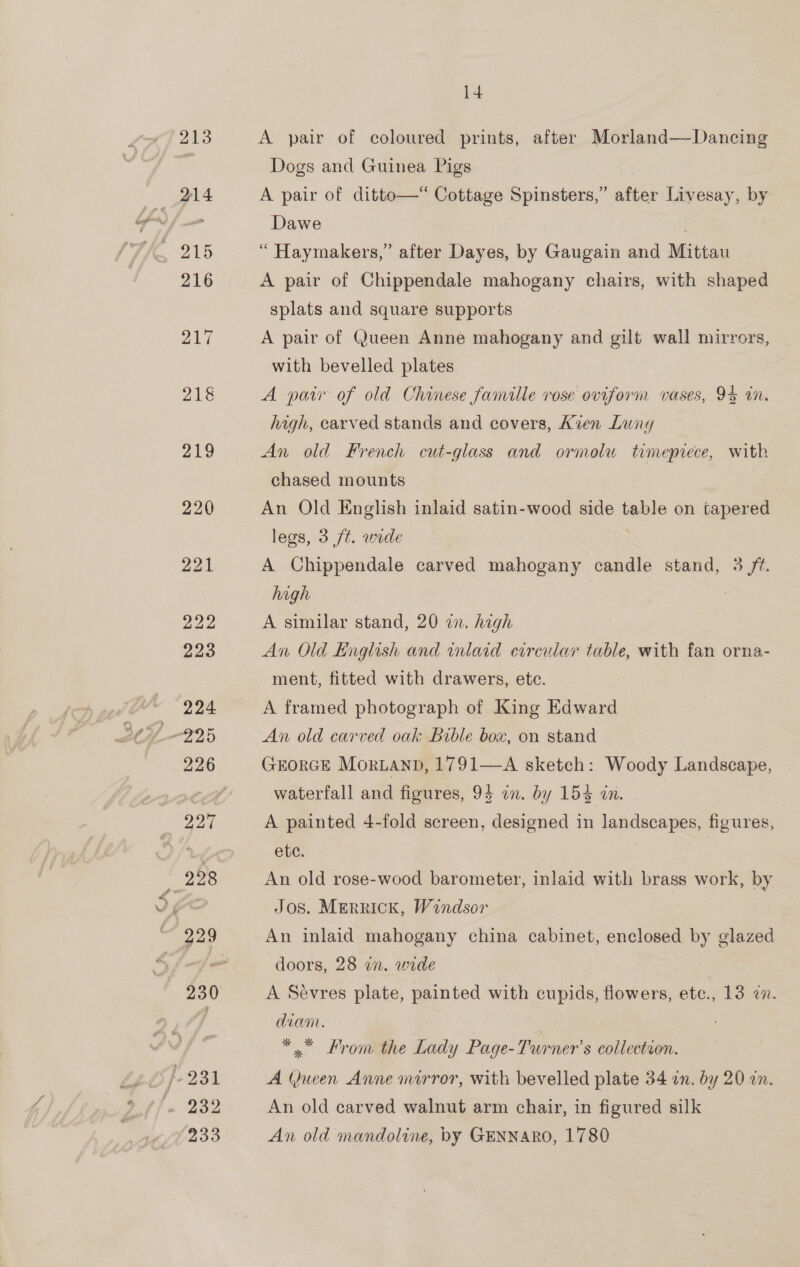 14
213 A pair of coloured prints, after Morland—Dancing
Dogs and Guinea Pigs
214 A pair of ditto—“ Cottage Spinsters,” after Livesay, by
Dawe
215 “ Haymakers,” after Dayes, by Gaugain and Mittau
216 A pair of Chippendale mahogany chairs, with shaped
splats and square supports
217 A pair of Queen Anne mahogany and gilt wall mirrors,
with bevelled plates
218 A pair of old Chinese famille rose oviform vases, 9½ in.
high, carved stands and covers, Kien Lung
219 An old French cut-glass and ormolu timepiece, with
chased mounts
220 An Old English inlaid satin-wood side table on tapered
legs, 3 ft. wide
221 A Chippendale carved mahogany candle stand, 3 ft.
high
222 A similar stand, 20 in. high
223 An Old English and inlaid circular table, with fan orna-
ment, fitted with drawers, etc.
224 A framed photograph of King Edward
225 An old carved oak Bible box, on stand
226 GEORGE MORLAND, 1791—A sketch: Woody Landscape,
waterfall and figures, 9½ in. by 15½ in.
227 A painted 4-fold screen, designed in landscapes, figures,
etc.
228 An old rose-wood barometer, inlaid with brass work, by
JOS. MERRICK, Windsor
229 An inlaid mahogany china cabinet, enclosed by glazed
doors, 28 in. wide
230 A Sèvres plate, painted with cupids, flowers, etc., 13 in.
diam.
*** From the Lady Page-Turner’s collection.
231 A Queen Anne mirror, with bevelled plate 34 in. by 20 in.
232 An old carved walnut arm chair, in figured silk
233 An old mandoline, by GENNARO, 1780